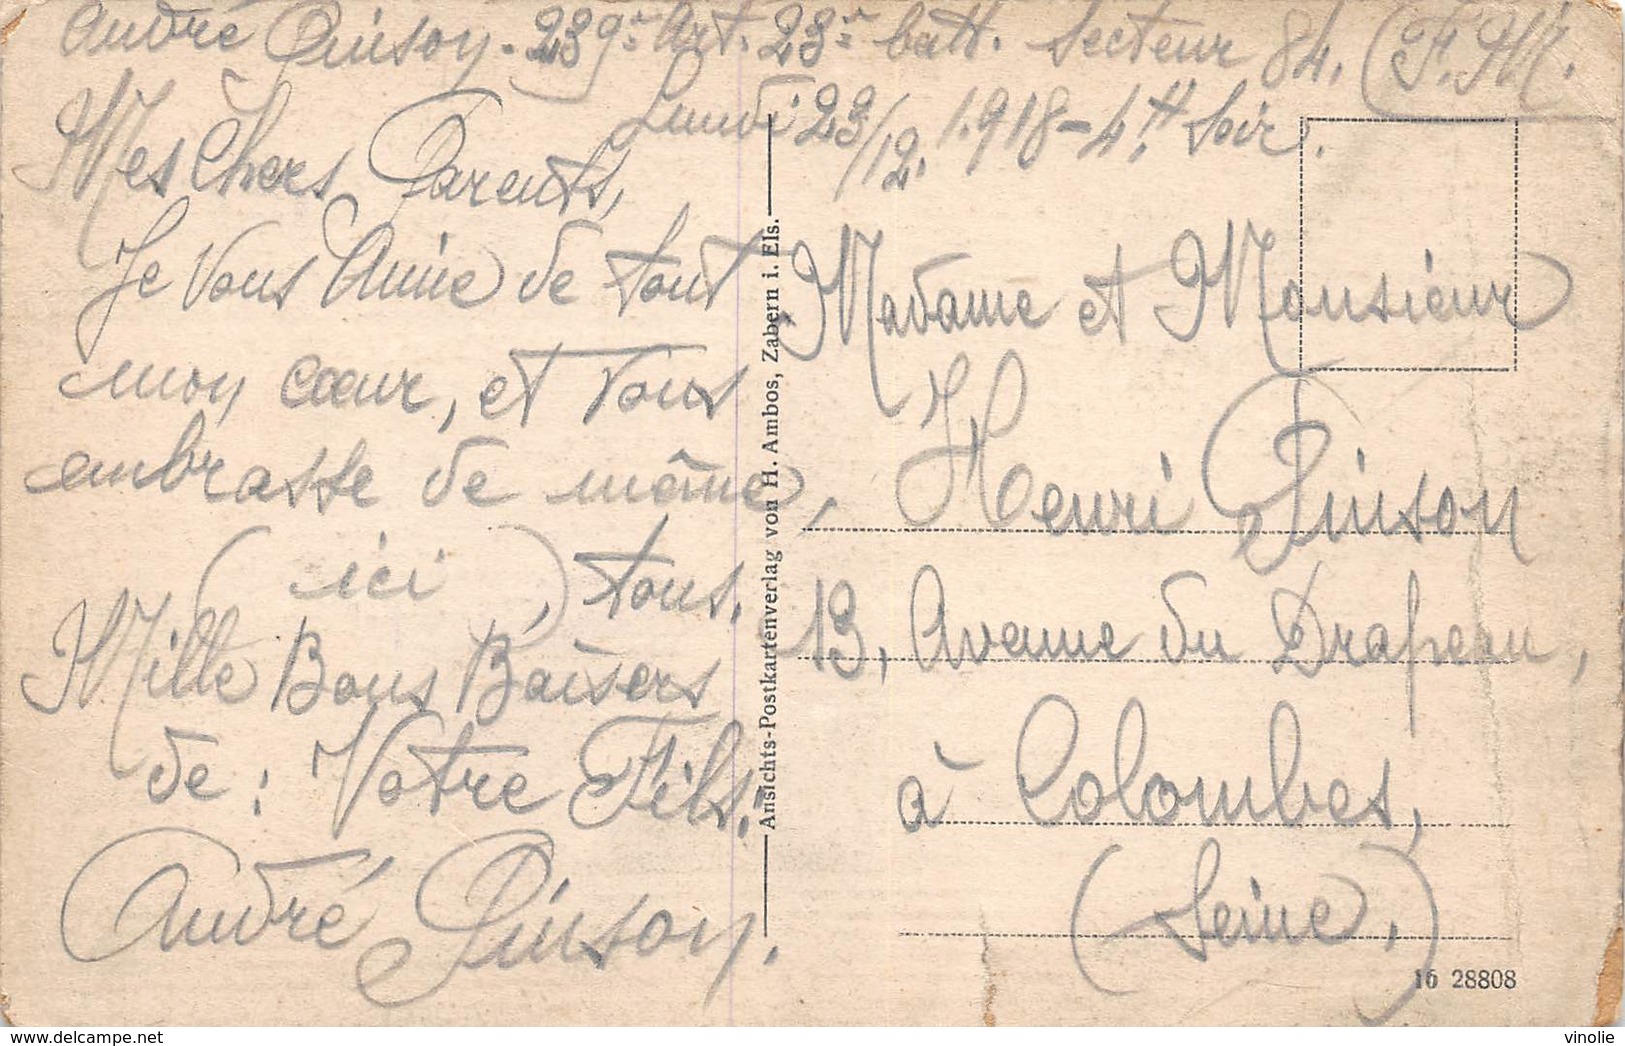 André Pinson - 239e Art. 23e batt. Secteur 84. (F.M.
Lundi 23/12. 1918 - 4.H Soir.
Mes Chers Parents,
Je Vous Aime de tout
mon cœur, et Vous
embrasse de même,
(ici), tous.
Mille Bons Baisers
de : Votre Fils.
André Pinson.
Ansichts-Postkartenverlag von H. Ambos, Zabern i. Els.
Madame et Monsieur
Henri Pinson
13, Avenue du Drapeau,
à Colombes,
(Seine.)
16 28808
www.delcampe.net
vinolie